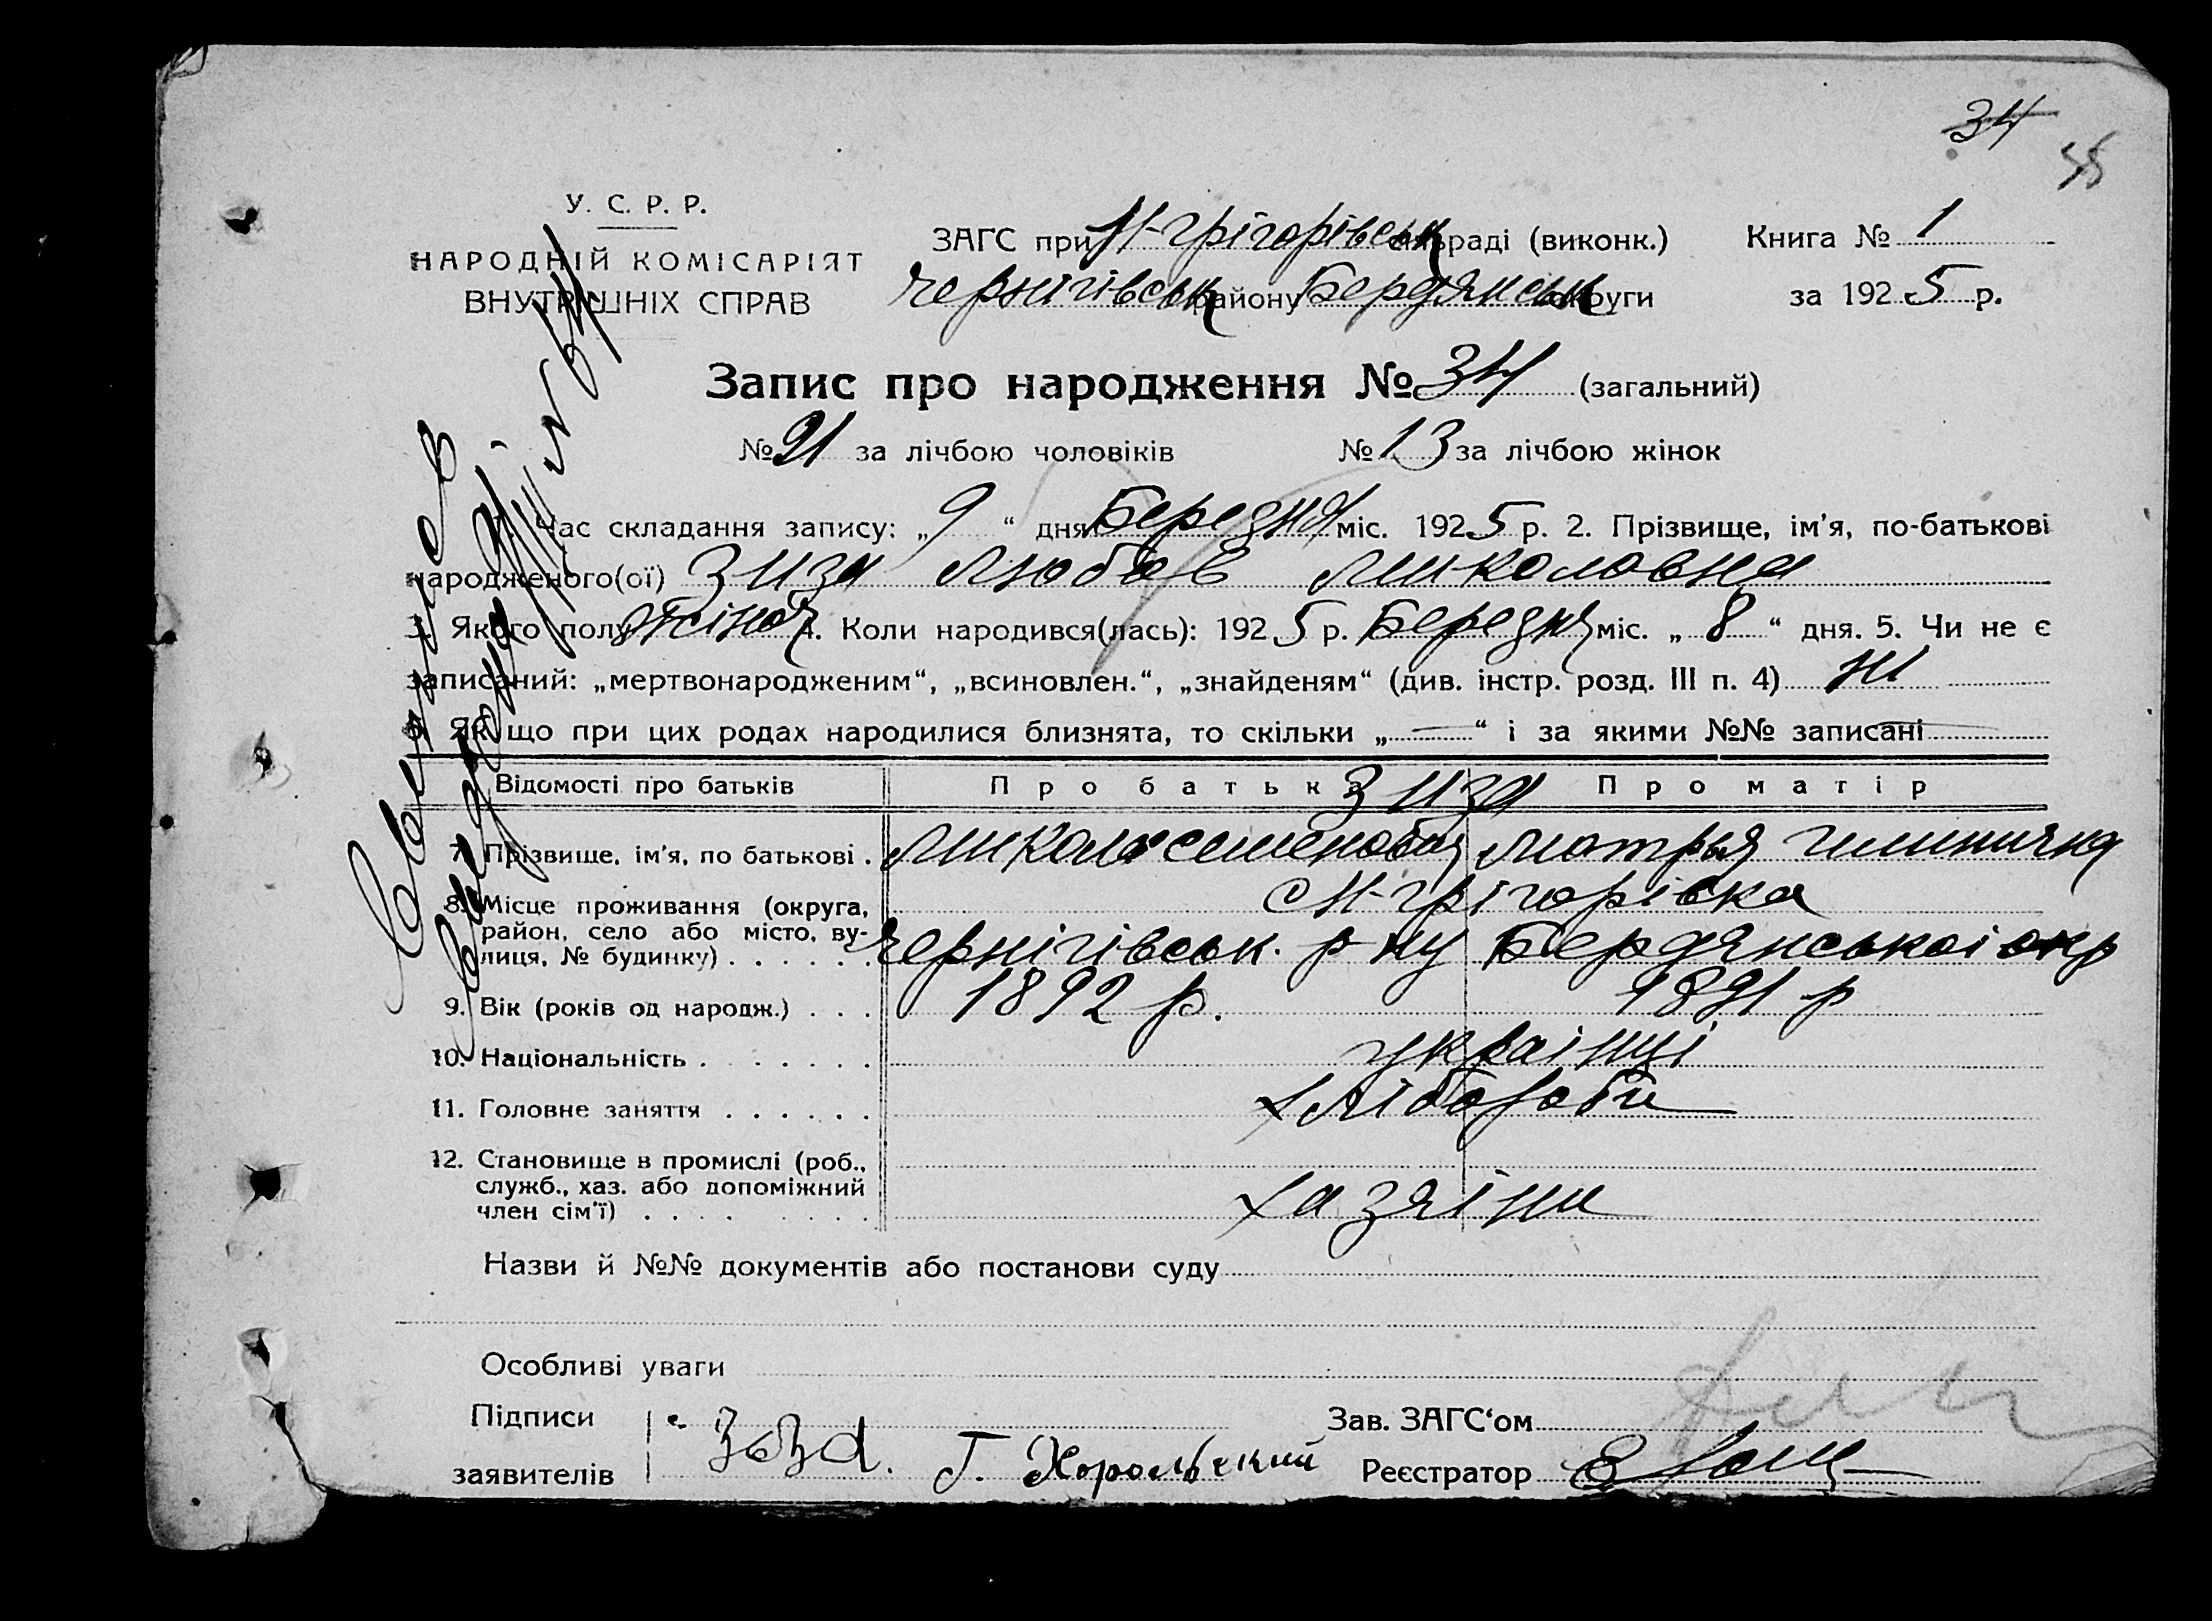 34
У. С. Р. Р.
НАРОДНІЙ КОМІСАРІЯТ
ВНУТРІШНІХ СПРАВ
ЗАГС при Н-Грігорівськ раді (виконк.) Книга № 1
Чернігівськ району Бердянськ округи за 1925 р.
Запис про народження № 34 (загальний)
№ 21 за лічбою чоловіків № 13 за лічбою жінок
1. Час складання запису: „9“ дня Березня міс. 1925 р. 2. Прізвище, ім'я, по-батькові
народженого(ої) Зиза Любов Миколовна
3. Якого полу жіноч 4. Коли народився(лась): 1925 р. Березня міс. „8“ дня. 5. Чи не є
записаний: „мертвонародженим“, „всиновлен.“, „знайденям“ (див. інстр. розд. III п. 4) ні
6. Як що при цих родах народилися близнята, то скільки „—“ і за якими №№ записані —
Відомості про батьків Про батька Про матір
Зиза
7. Прізвище, ім'я, по батькові . Микола Семенович Мотря
8. Місце проживання (округа, район, село або місто, вулиця, № будинку) . . . . . . с Н-Грігорівка
Чернігівськ. р-ну Бердянської окр
9. Вік (років од народж.) . . . 1892 р. 1891 р
10. Національність . . . . . . . українці
11. Головне заняття . . . . . . хлібороби
12. Становище в промислі (роб., служб., хаз. або допоміжний член сім'ї) . . . . . . . . хазяіни
Назви й №№ документів або постанови суду
Особливі уваги
Підписи заявителів Зоза. Г. Хорольский
Зав. ЗАГС'ом
Реєстратор